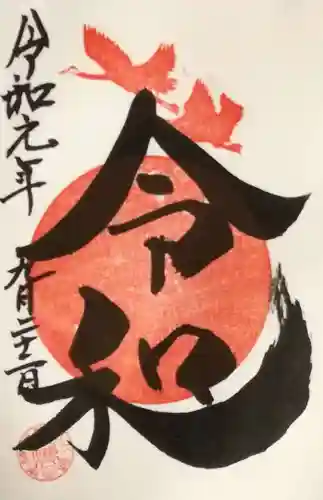 令和
令和元年
九月二十二日